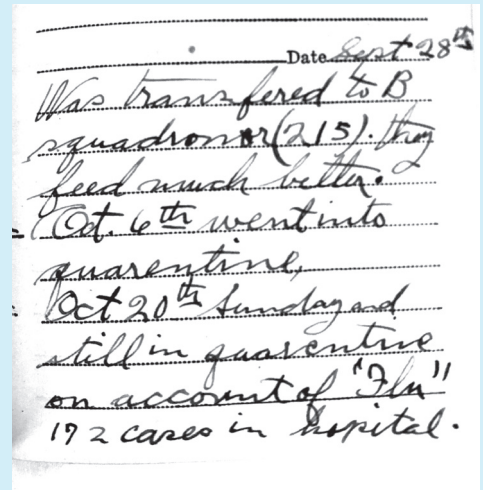 Date Sept 28th
Was transfered to B
squadron or (215). they
feed much better.
Oct. 6th went into
quarentine,
Oct 20th Sunday and
still in quarentine
on account of "Flu"
172 cases in hopital.